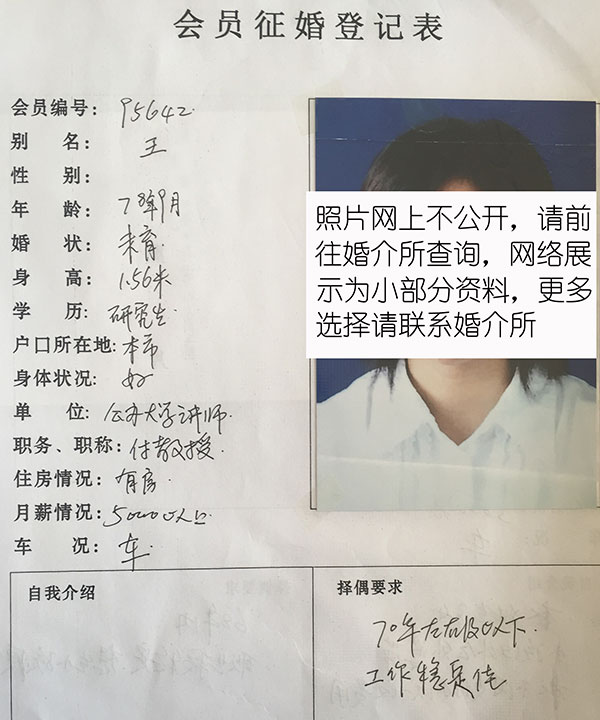 会员征婚登记表
会员编号: 95642.
别 名: 王
性 别:
年 龄: 78年9月
婚 状: 未育.
身 高: 1.56米
学 历: 研究生
户口所在地: 本市
身体状况: 好
单 位: 公办大学讲师.
职务、职称: 付教授.
住房情况: 有房.
月薪情况: 5000以上
车 况: 车.
照片网上不公开，请前
往婚介所查询，网络展
示为小部分资料，更多
选择请联系婚介所
自我介绍
择偶要求
70年左右及以下.
工作稳定佳